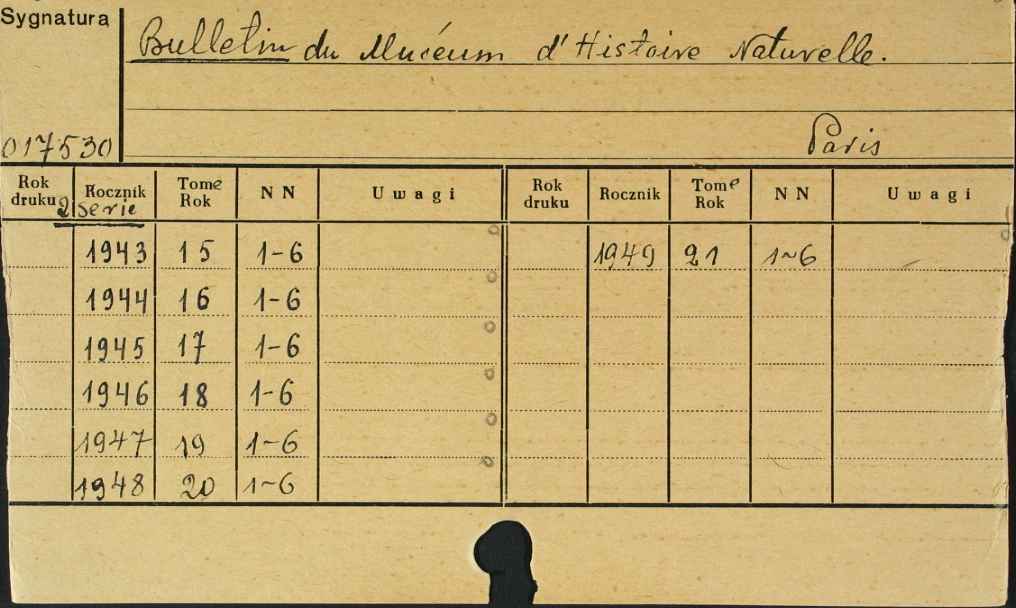 Sygnatura
Bulletin du Muséum d'Histoire Naturelle.
Paris
017530
Rok druku Rocznik Tome Rok N N Uwagi Rok druku Rocznik Tome Rok N N Uwagi
2 serie
1943 15 1-6 1949 21 1~6
1944 16 1-6
1945 17 1-6
1946 18 1-6
1947 19 1~6
1948 20 1~6